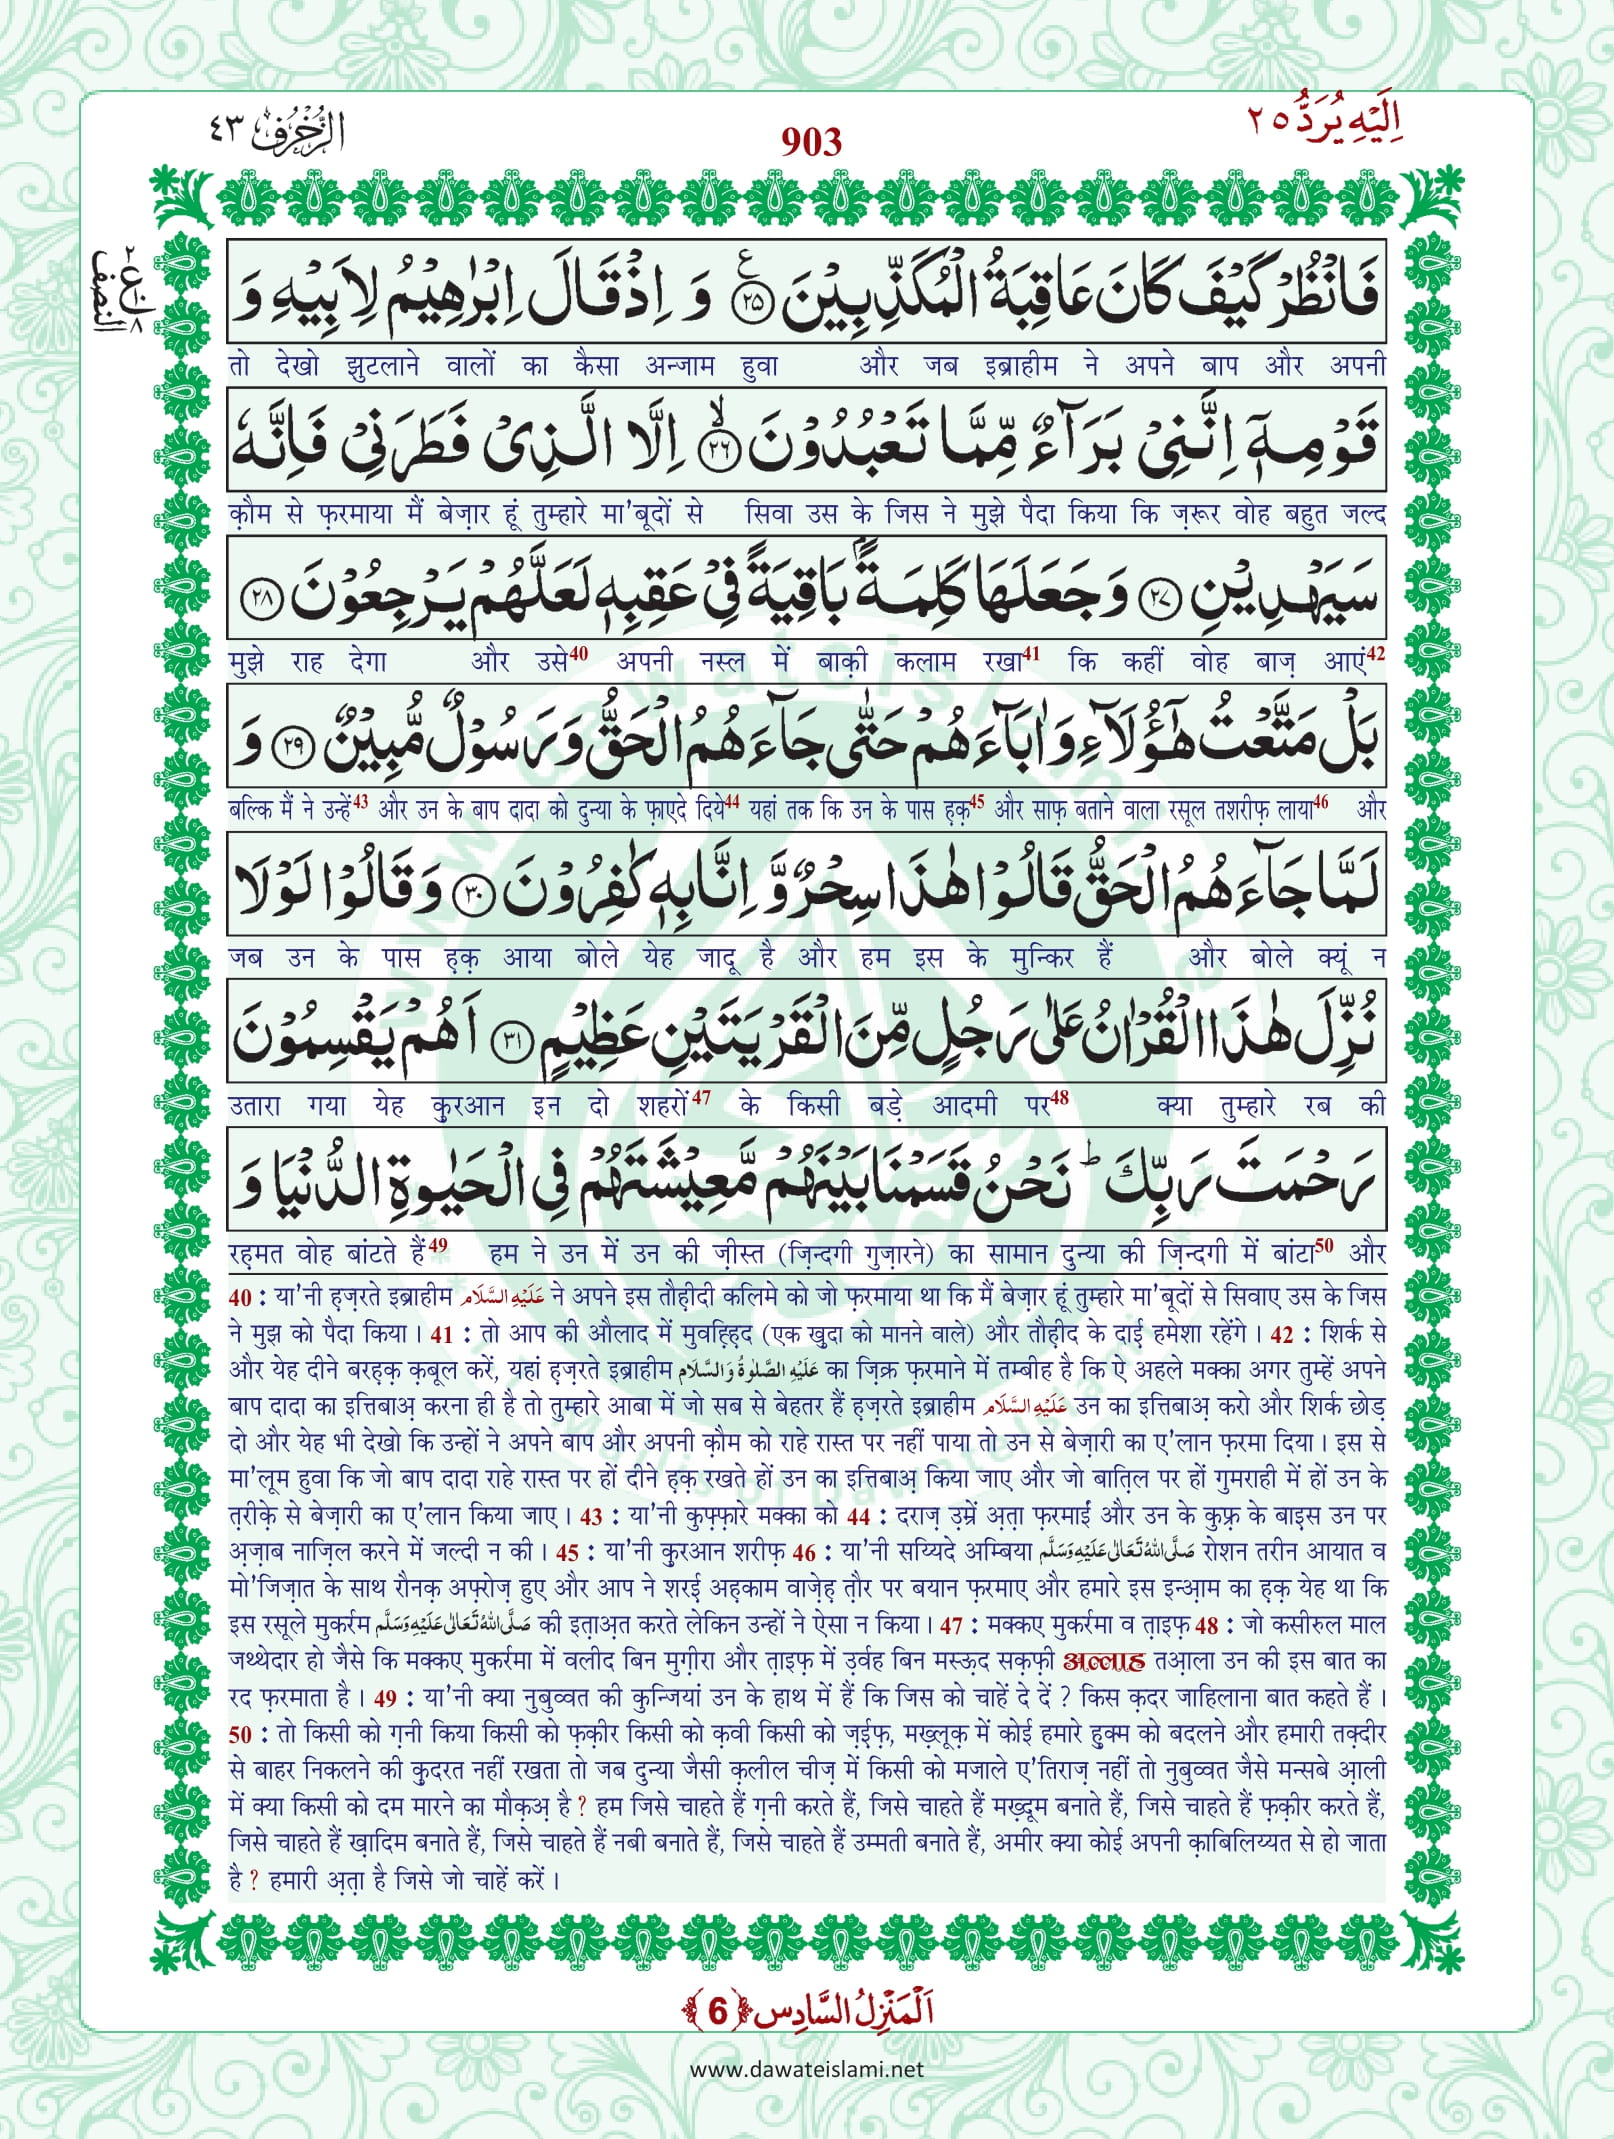 اِلَيْهِ يُرَدُّ ٢٥
903
الزُّخْرُف ٤٣
النصف
فَانْظُرْ كَيْفَ كَانَ عَاقِبَةُ الْمُكَذِّبِيْنَ ﴿۲۵﴾ۧ وَ اِذْ قَالَ اِبْرٰهِيْمُ لِاَبِيْهِ وَ
तो देखो झुटलाने वालों का कैसा अन्जाम हुवा और जब इब्राहीम ने अपने बाप और अपनी
قَوْمِهٖۤ اِنَّنِيْ بَرَآءٌ مِّمَّا تَعْبُدُوْنَ ﴿۲۶﴾ۙ اِلَّا الَّذِيْ فَطَرَنِيْ فَاِنَّهٗ
क़ौम से फ़रमाया मैं बेज़ार हूं तुम्हारे मा'बूदों से सिवा उस के जिस ने मुझे पैदा किया कि ज़रूर वोह बहुत जल्द
سَيَهْدِيْنِ ﴿۲۷﴾ وَ جَعَلَهَا كَلِمَةًۢ بَاقِيَةً فِيْ عَقِبِهٖ لَعَلَّهُمْ يَرْجِعُوْنَ ﴿۲۸﴾
मुझे राह देगा और उसे40 अपनी नस्ल में बाक़ी कलाम रखा41 कि कहीं वोह बाज़ आएं42
بَلْ مَتَّعْتُ هٰۤؤُلَآءِ وَ اٰبَآءَهُمْ حَتّٰى جَآءَهُمُ الْحَقُّ وَ رَسُوْلٌ مُّبِيْنٌ ﴿۲۹﴾ وَ
बल्कि मैं ने उन्हें43 और उन के बाप दादा को दुन्या के फ़ाएदे दिये44 यहां तक कि उन के पास ह़क़45 और साफ़ बताने वाला रसूल तशरीफ़ लाया46 और
لَمَّا جَآءَهُمُ الْحَقُّ قَالُوْا هٰذَا سِحْرٌ وَّ اِنَّا بِهٖ كٰفِرُوْنَ ﴿۳۰﴾ وَ قَالُوْا لَوْ لَا
जब उन के पास ह़क़ आया बोले येह जादू है और हम इस के मुन्किर हैं और बोले क्यूं न
نُزِّلَ هٰذَا الْقُرْاٰنُ عَلٰى رَجُلٍ مِّنَ الْقَرْيَتَيْنِ عَظِيْمٍ ﴿۳۱﴾ اَهُمْ يَقْسِمُوْنَ
उतारा गया येह क़ुरआन इन दो शहरों47 के किसी बड़े आदमी पर48 क्या तुम्हारे रब की
رَحْمَتَ رَبِّكَ ؕ نَحْنُ قَسَمْنَا بَيْنَهُمْ مَّعِيْشَتَهُمْ فِي الْحَيٰوةِ الدُّنْيَا وَ
रह़मत वोह बांटते हैं49 हम ने उन में उन की ज़ीस्त (ज़िन्दगी गुज़ारने) का सामान दुन्या की ज़िन्दगी में बांटा50 और
40 : या'नी ह़ज़रते इब्राहीम عَلَيْهِ السَّلَام ने अपने इस तौह़ीदी कलिमे को जो फ़रमाया था कि मैं बेज़ार हूं तुम्हारे मा'बूदों से सिवाए उस के जिस
ने मुझ को पैदा किया। 41 : तो आप की औलाद में मुवह़्ह़िद (एक ख़ुदा को मानने वाले) और तौह़ीद के दाई हमेशा रहेंगे। 42 : शिर्क से
और येह दीने बरह़क़ क़बूल करें, यहां ह़ज़रते इब्राहीम عَلَيْهِ الصَّلٰوةُ وَالسَّلَام का ज़िक्र फ़रमाने में तम्बीह है कि ऐ अहले मक्का अगर तुम्हें अपने
बाप दादा का इत्तिबाअ़ करना ही है तो तुम्हारे आबा में जो सब से बेहतर हैं ह़ज़रते इब्राहीम عَلَيْهِ السَّلَام उन का इत्तिबाअ़ करो और शिर्क छोड़
दो और येह भी देखो कि उन्हों ने अपने बाप और अपनी क़ौम को राहे रास्त पर नहीं पाया तो उन से बेज़ारी का ए'लान फ़रमा दिया। इस से
मा'लूम हुवा कि जो बाप दादा राहे रास्त पर हों दीने ह़क़ रखते हों उन का इत्तिबाअ़ किया जाए और जो बात़िल पर हों गुमराही में हों उन के
त़रीक़े से बेज़ारी का ए'लान किया जाए। 43 : या'नी कुफ़्फ़ारे मक्का को 44 : दराज़ उ़म्रें अ़त़ा फ़रमाईं और उन के कुफ़्र के बाइस उन पर
अ़ज़ाब नाज़िल करने में जल्दी न की। 45 : या'नी क़ुरआन शरीफ़ 46 : या'नी सय्यिदे अम्बिया صَلَّى اللهُ تَعَالٰى عَلَيْهِ وَسَلَّم रोशन तरीन आयात व
मो'जिज़ात के साथ रौनक़ अफ़्रोज़ हुए और आप ने शरई अह़काम वाज़ेह़ त़ौर पर बयान फ़रमाए और हमारे इस इन्आ़म का ह़क़ येह था कि
इस रसूले मुकर्रम صَلَّى اللهُ تَعَالٰى عَلَيْهِ وَسَلَّم की इत़ाअ़त करते लेकिन उन्हों ने ऐसा न किया। 47 : मक्कए मुकर्रमा व त़ाइफ़ 48 : जो कसीरुल माल
जथ्थेदार हो जैसे कि मक्कए मुकर्रमा में वलीद बिन मुग़ीरा और त़ाइफ़ में उ़र्वह बिन मस्ऊ़द सक़फ़ी अल्लाह तआ़ला उन की इस बात का
रद फ़रमाता है। 49 : या'नी क्या नुबुव्वत की कुन्जियां उन के हाथ में हैं कि जिस को चाहें दे दें ? किस क़दर जाहिलाना बात कहते हैं।
50 : तो किसी को ग़नी किया किसी को फ़क़ीर किसी को क़वी किसी को ज़ई़फ़, मख़्लूक़ में कोई हमारे ह़ुक्म को बदलने और हमारी तक़्दीर
से बाहर निकलने की क़ुदरत नहीं रखता तो जब दुन्या जैसी क़लील चीज़ में किसी को मजाले ए'तिराज़ नहीं तो नुबुव्वत जैसे मन्सबे आ़ली
में क्या किसी को दम मारने का मौक़अ़ है ? हम जिसे चाहते हैं ग़नी करते हैं, जिसे चाहते हैं मख़्दूम बनाते हैं, जिसे चाहते हैं फ़क़ीर करते हैं,
जिसे चाहते हैं ख़ादिम बनाते हैं, जिसे चाहते हैं नबी बनाते हैं, जिसे चाहते हैं उम्मती बनाते हैं, अमीर क्या कोई अपनी क़ाबिलिय्यत से हो जाता
है ? हमारी अ़त़ा है जिसे जो चाहें करें।
اَلْمَنْزِلُ السَّادِس ﴿6﴾
www.dawateislami.net